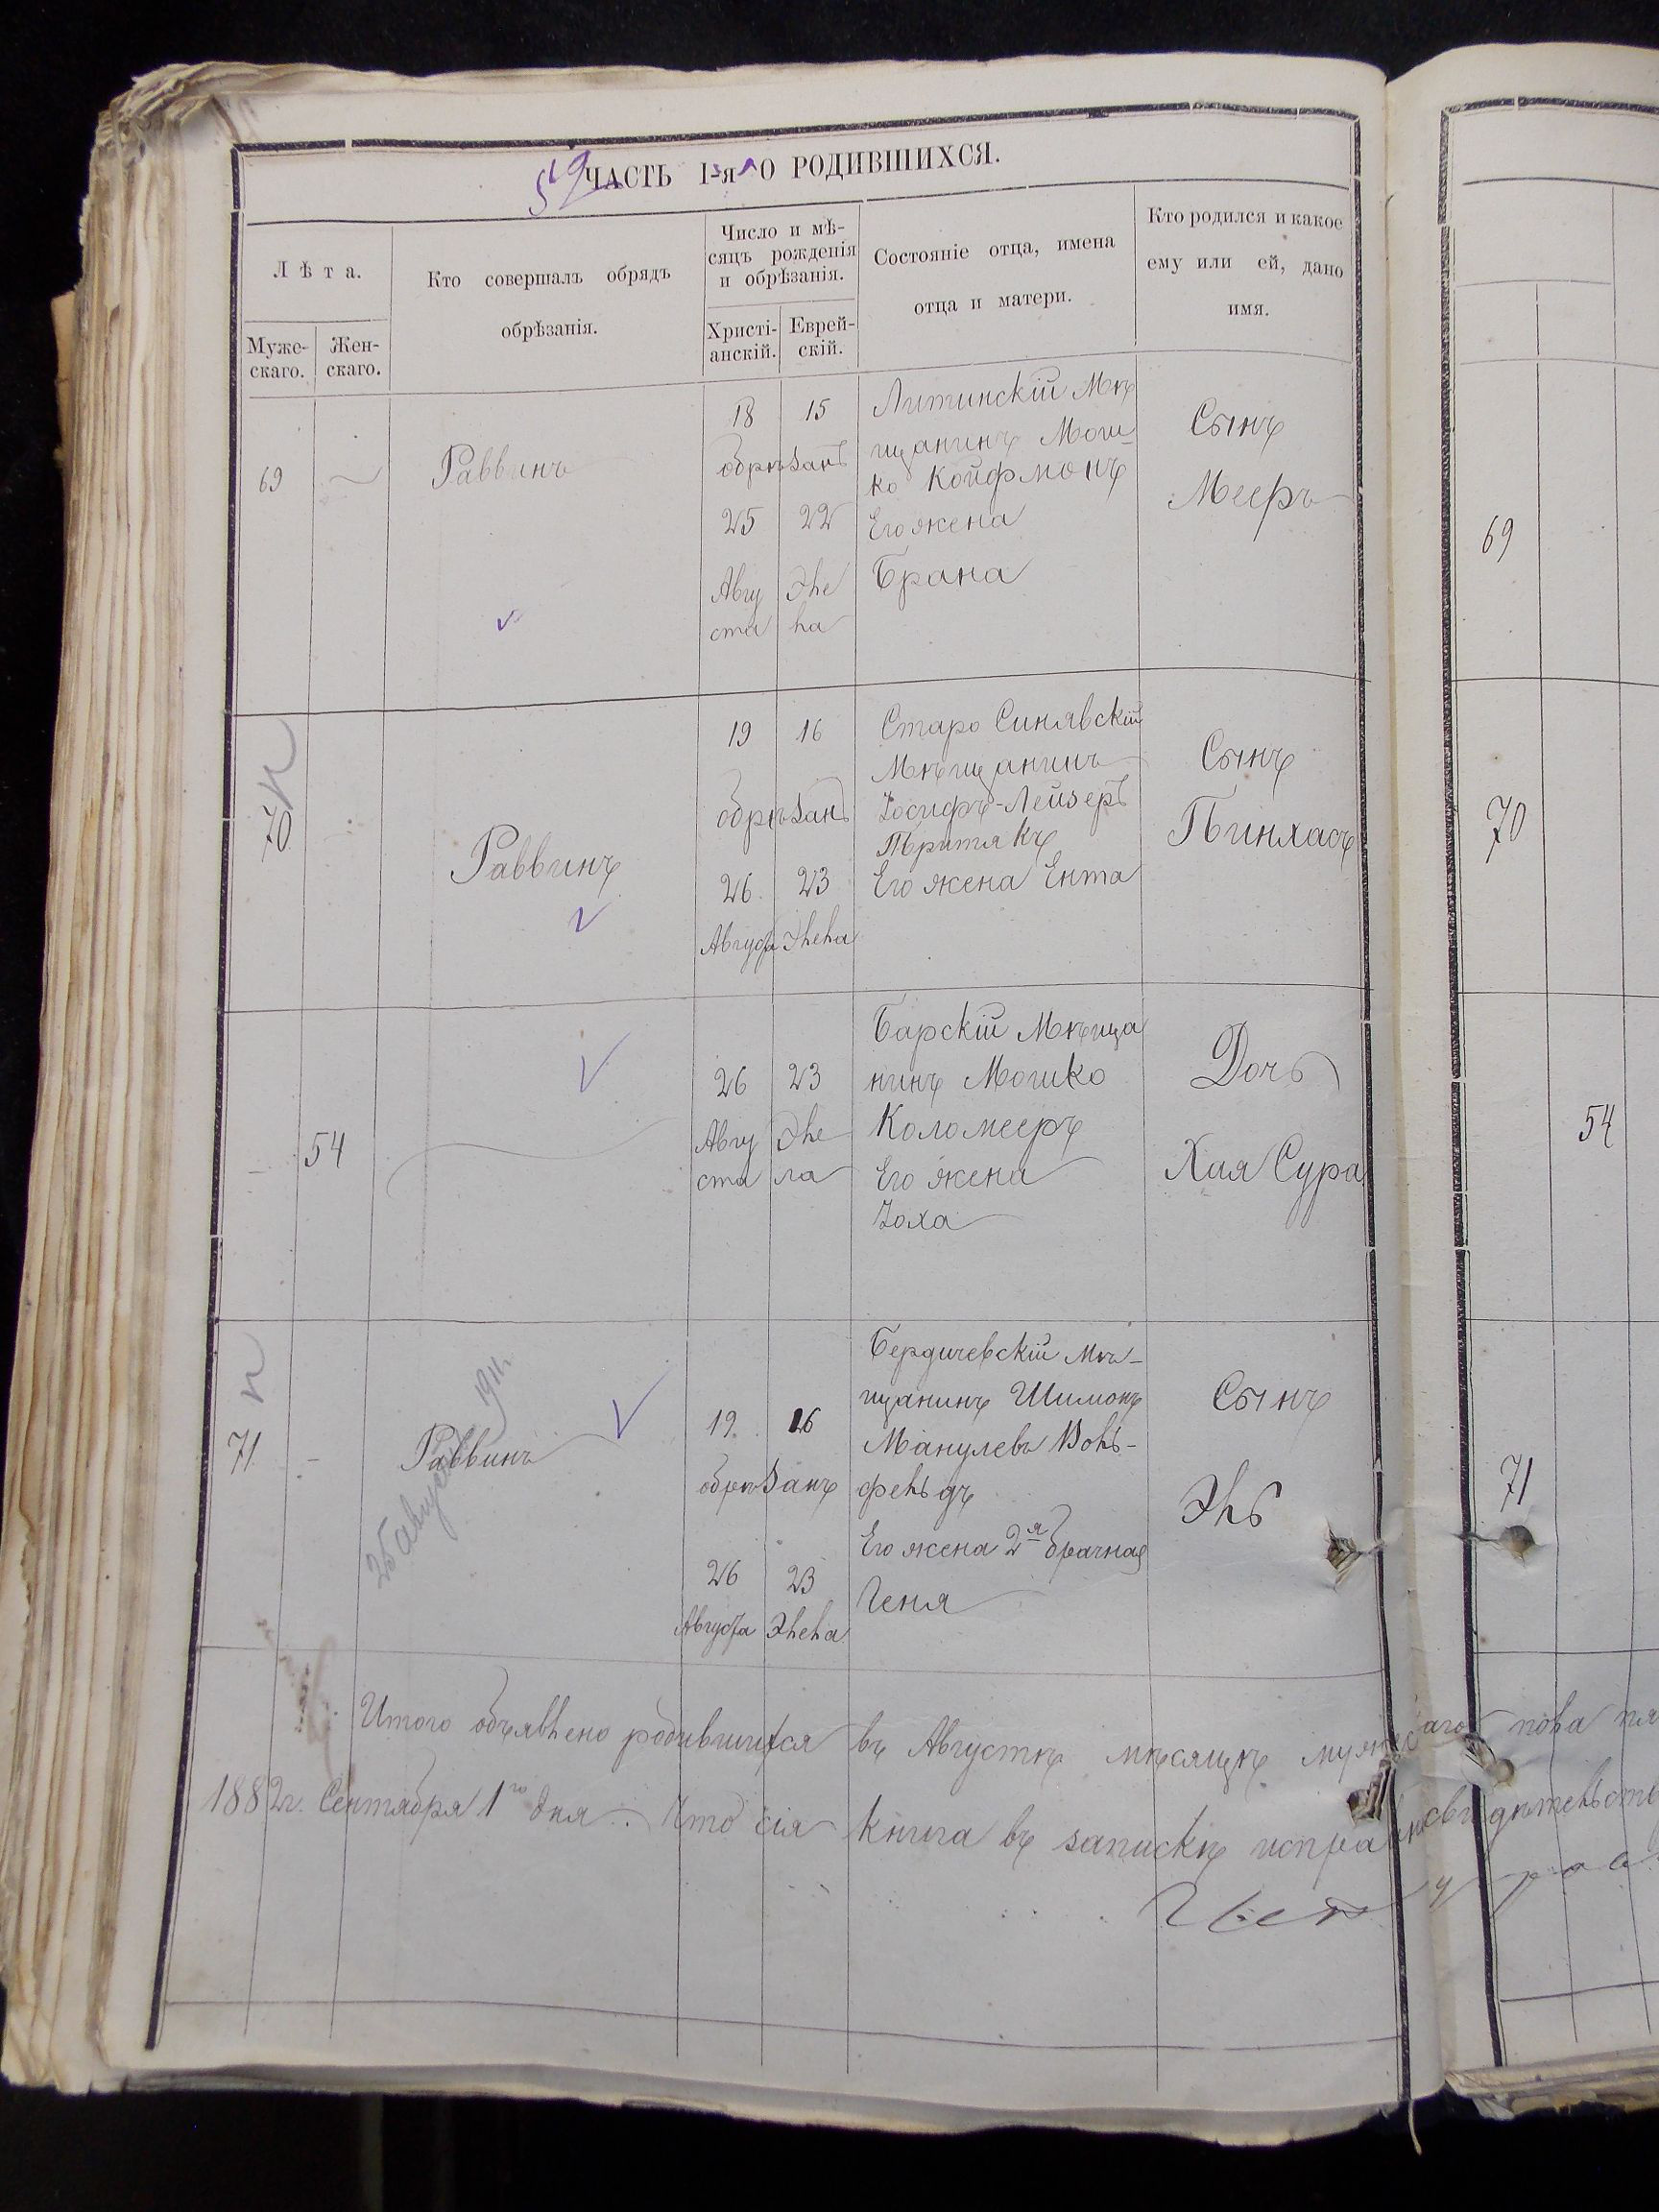 59
ЧАСТЬ I-я О РОДИВШИХСЯ.
Лѣта.
Муже-
скаго.
Жен-
скаго.
Кто совершалъ обрядъ
обрѣзанія.
Число и мѣ-
сяцъ рожденія
и обрѣзанія.
Христі-
анскій.
Еврей-
скій.
Состояніе отца, имена
отца и матери.
Кто родился и какое
ему или ей, дано
имя.
69
Раввинъ
18 15
обрѣзанъ
25 22
Авгу Эле
ста ла
Литинскій Мѣ
щанинъ Мош-
ко Койфманъ
Его жена
Брана
Сынъ
Мееръ
69
70
Раввинъ
19 16
обрѣзанъ
26 23
Августа Элела
Старо Синявскій
Мѣщанинъ
Іосифъ-Лейзеръ
Притякъ
Его жена Ента
Сынъ
Пинхасъ
70
54
26 23
Авгу Эле
ста ла
Барскій Мѣща
нинъ Мошко
Коломееръ
Его жена
Іоха
Дочь
Хая Сура
54
71
Раввинъ
25 августа 1911.
19 16
обрѣзанъ
26 23
Августа Элела
Бердичевскій мѣ-
щанинъ Шимонъ
Манулевъ Воль-
фельдъ
Его жена 2я брачная
Геня
Сынъ
Эль
71
Итого объявлено родившихся въ Августѣ мѣсяцѣ мужескаго пола
1882 г. Сентября 1го дня. Что сія книга въ запискѣ исправна свидѣтельств